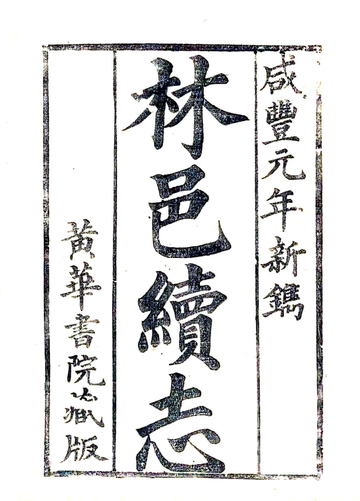 咸豐元年新鐫
林邑續志
黄華書院藏版